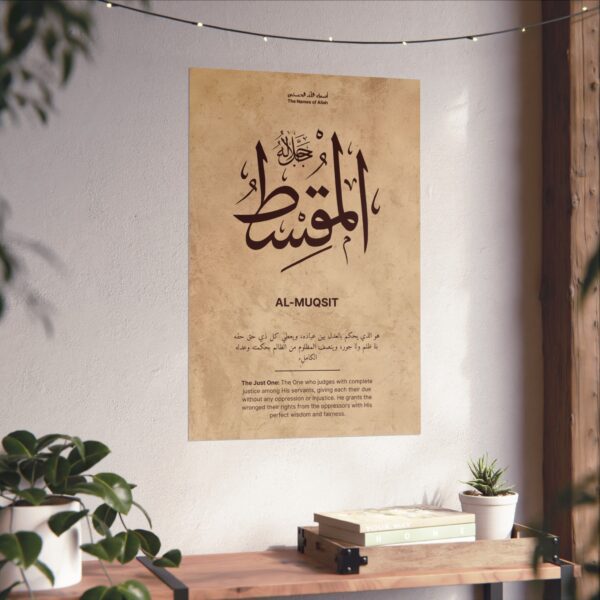 أسماء الله الحسنى
The Names of Allah
جل جلاله
المقسط
AL-MUQSIT
هو الذي يحكم بالعدل بين عباده، ويعطي كل ذي حق حقه
بلا ظلم ولا جور، وينصف المظلوم من الظالم بحكمته وعدله
الكامل.
The Just One: The One who judges with complete
justice among His servants, giving each their due
without any oppression or injustice. He grants the
wronged their rights from the oppressors with His
perfect wisdom and fairness.